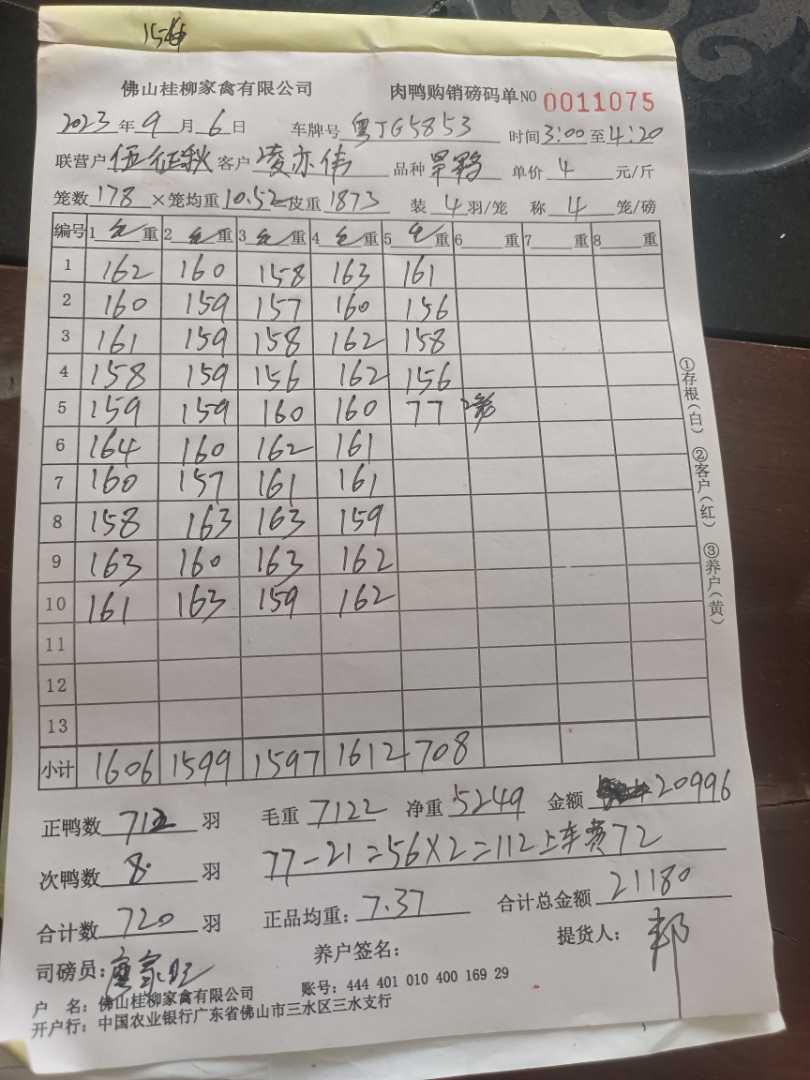 佛山桂柳家禽有限公司 肉鸭购销磅码单NO 0011075
2023年9月6日 车牌号 粤JG5853 时间3:00至4:20
联营户 伍征秋 客户 凌亦伟 品种 旱鸭 单价 4 元/斤
笼数 178 ×笼均重 10.52 皮重 1873 装 4 羽/笼 称 4 笼/磅
编号 1 毛 重 2 毛 重 3 毛 重 4 毛 重 5 毛 重 6 重 7 重 8 重
1 162 160 158 163 161
2 160 159 157 160 156
3 161 159 158 162 158
4 158 159 156 162 156
5 159 159 160 160 77
6 164 160 162 161
7 160 157 161 161
8 158 163 163 159
9 163 160 163 162
10 161 163 159 162
11
12
13
小计 1606 1599 1597 1612 708
正鸭数 712 羽 毛重 7122 净重 5249 金额 20996
次鸭数 8 羽 77-21=56×2=112上车费72
合计数 720 羽 正品均重: 7.37 合计总金额 21180
司磅员: 养户签名: 提货人:
户 名: 佛山桂柳家禽有限公司 账号: 444 401 010 400 169 29
开户行: 中国农业银行广东省佛山市三水区三水支行
①存根(白) ②客户(红) ③养户(黄)